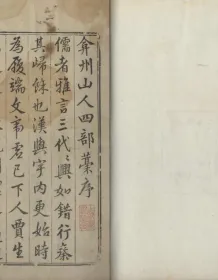 弇州山人四部藁序
儒者雅言三代〻興如錯行秦
其歸餘也漢興宇內更始時
為發端文帝虛己下人賈生